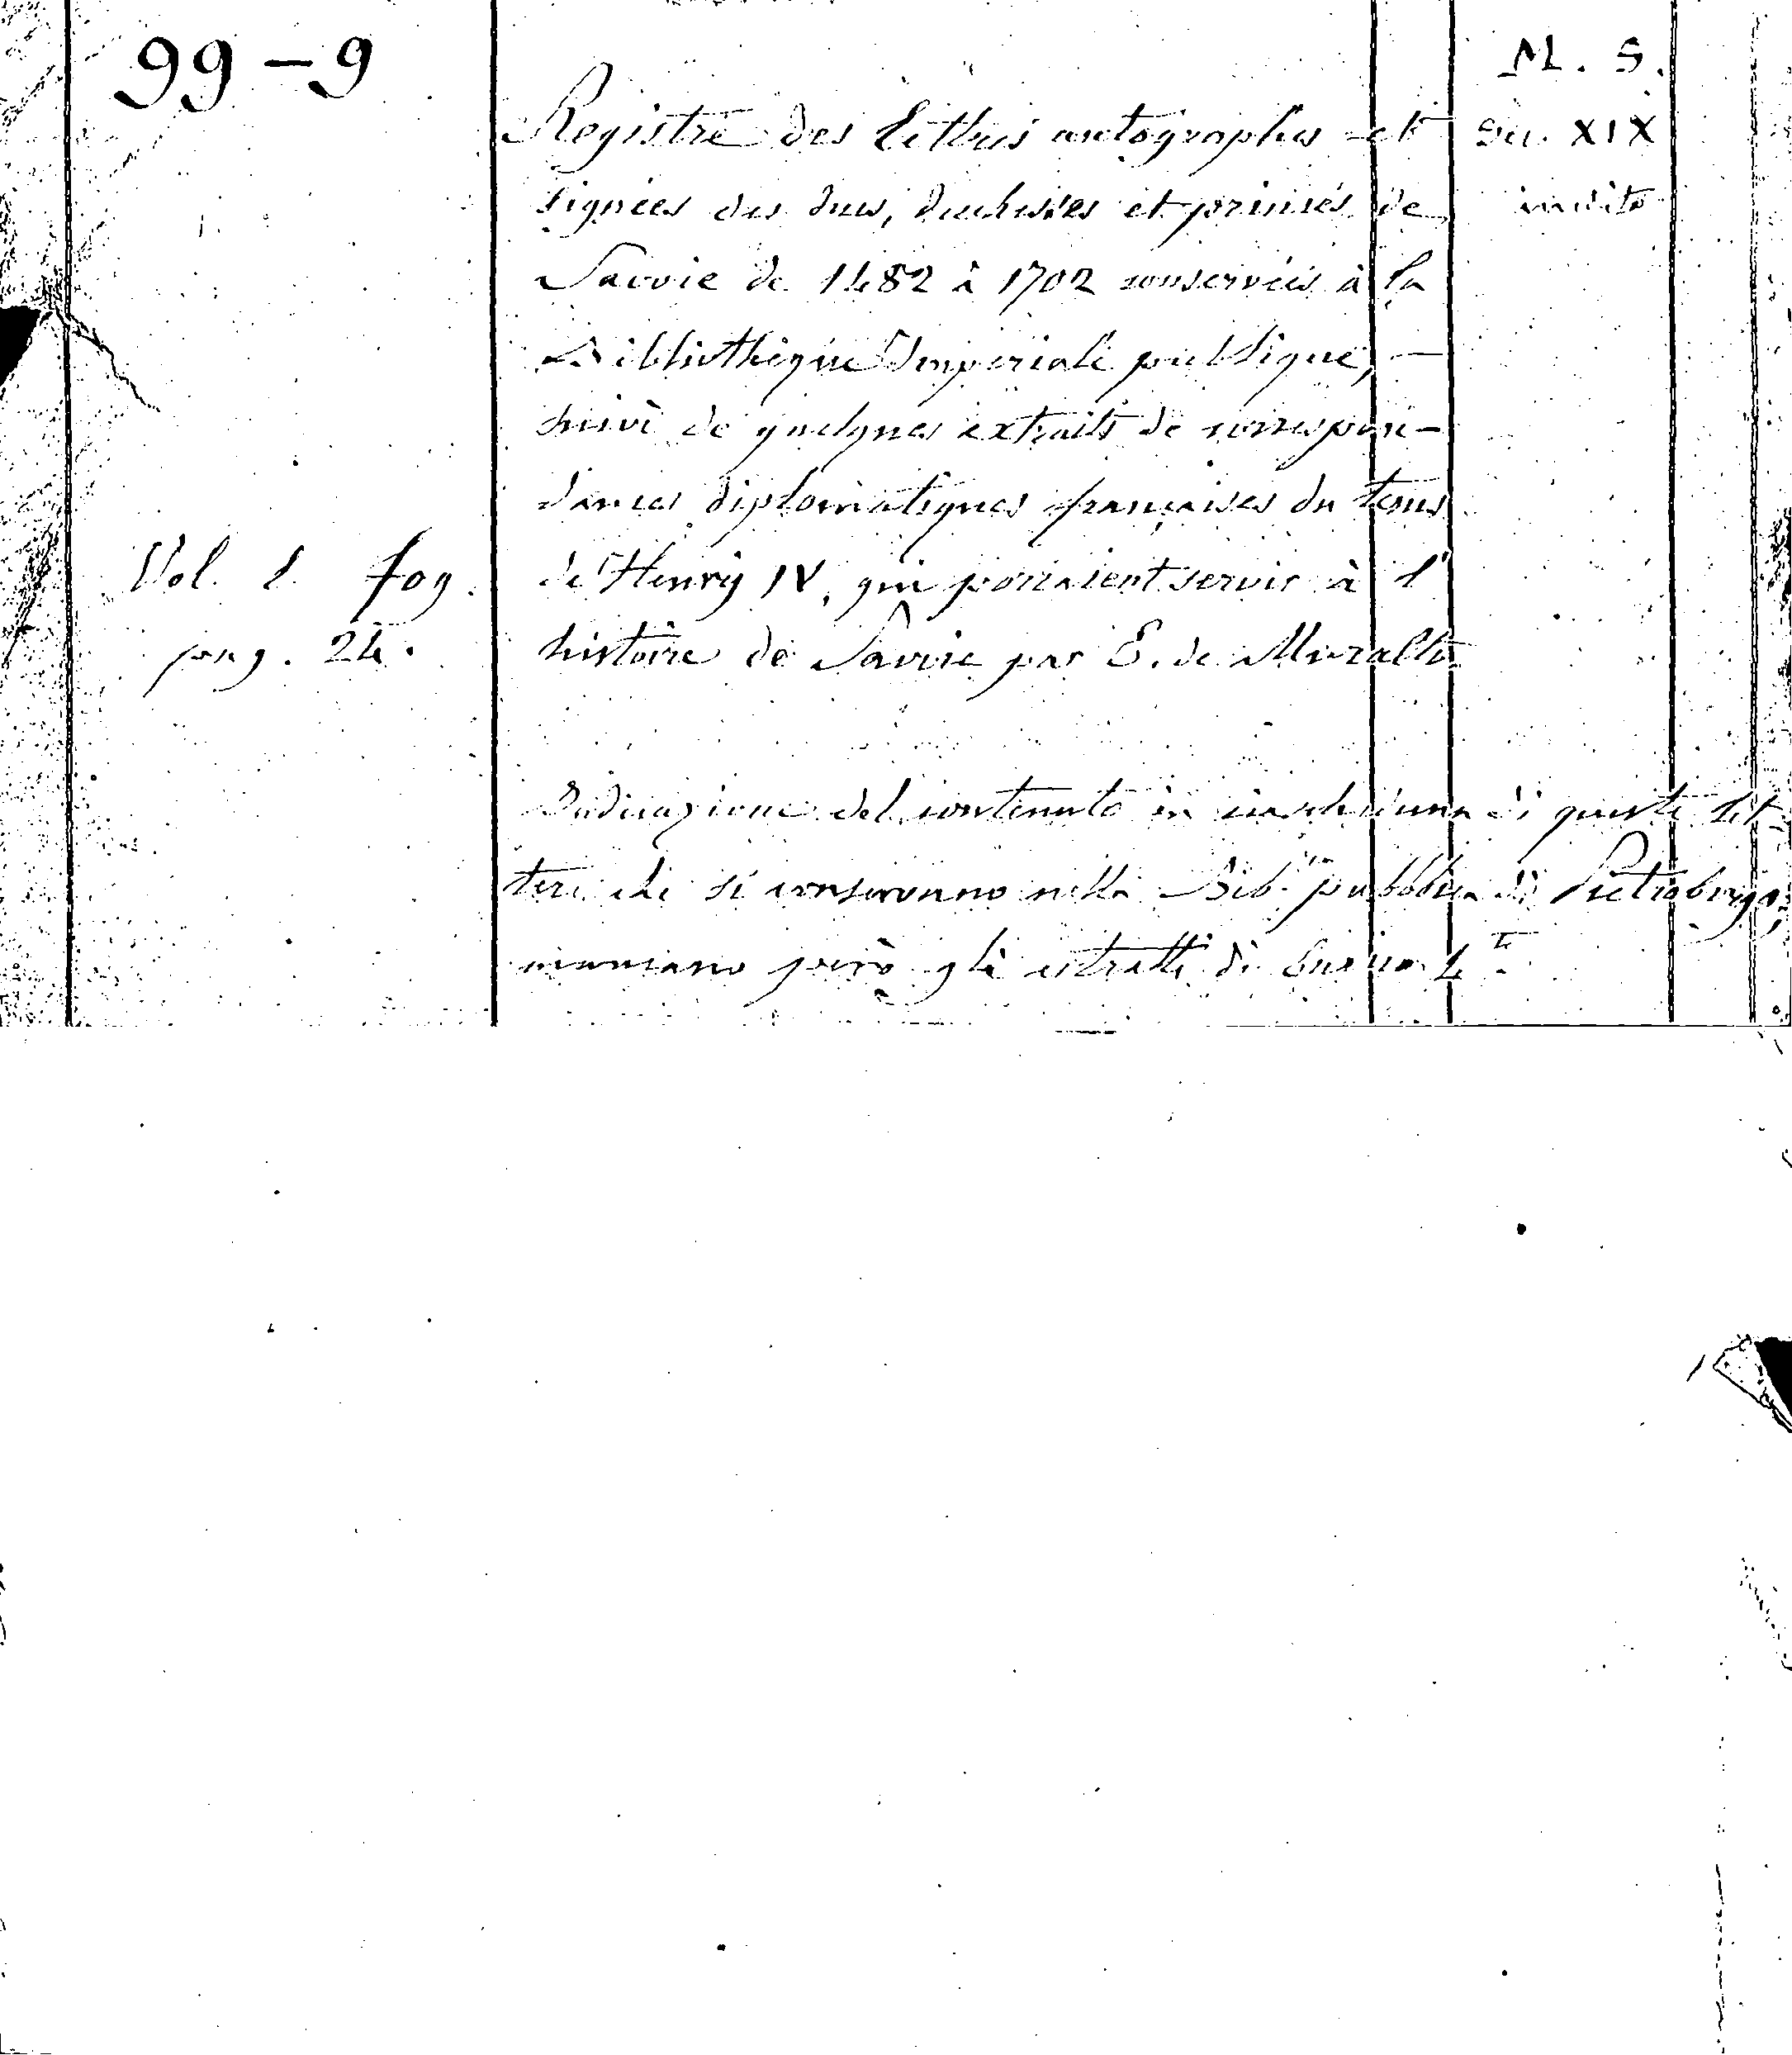 99-9
M. S.
Registre des Lettres autographes et
Sec. XIX
signées des ducs, duchesses et princes de
inedito
Savoie de 1482 à 1702 conservées à la
Bibliothèque Imperiale publique, -
suivi de quelques extraits de correspon-
dances diplomatiques françaises du tems
Vol. 1. fog.
de Henry IV, qui porraient servir à l'
pag. 24.
histoire de Savoie par E. de Muralto
Indicazione del contenuto in ciascheduna di queste let-
tere che si conservano nella Bib. pubblica di Pietroburgo,
mancano però gli estratti di